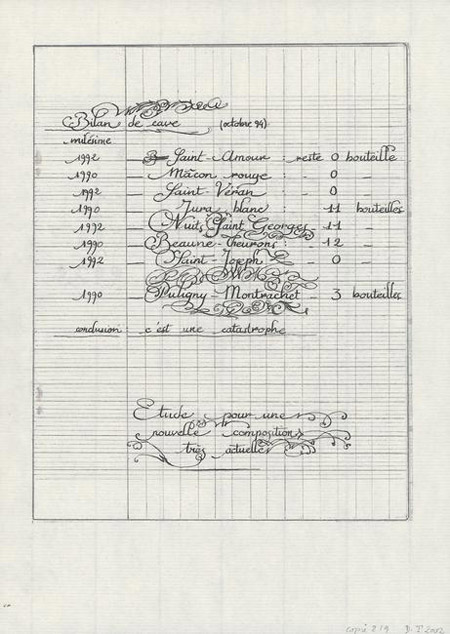 Bilan de cave (octobre 94)
millésime
1992 — Saint-Amour : reste 0 bouteille
1990 — Mâcon rouge : – 0 –
1992 — Saint-Véran : – 0 –
1990 — Jura blanc : – 11 bouteilles
1992 — Nuits Saint Georges – 11 –
1990 — Beaune-Theurons : – 12 –
1992 — Saint-Joseph – 0 –
1990 — Puligny-Montrachet – 3 bouteilles
conclusion : c'est une catastrophe
Etude pour une
nouvelle composition
très actuelle
copie 2/9 D. T. 2002